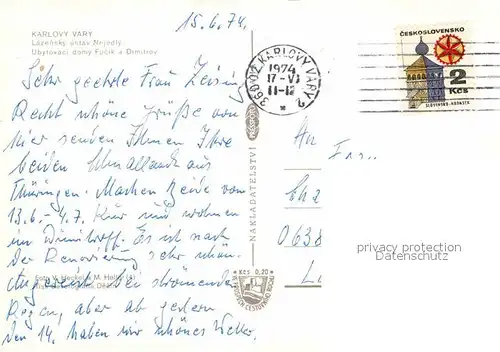 15.6.74.
KARLOVY VARY
Lázeňský ústav Nejedlý
Ubytovací domy Fučík a Dimitrov
Sehr geehrte Frau
Recht schöne Grüße von
hier senden Ihnen Ihre
beiden aus
Thüringen. Machen beide vom
13.6.-4.7. Kur und wohnen
im Dimitroff. Es ist nach
der Renovierung sehr schön.
bei strömenden
Regen, aber ab gestern
den 14. haben wir schönes Wetter.
Foto V. Heckel a M. Holler (4)
NAKLADATELSTVÍ
Kčs 0,20
360 02 KARLOVY VARY 2
1974
17.-VI
11-12
ČESKOSLOVENSKO
2
Kčs
SLOVENSKO-KEŽMAROK
An
Frs..
063
L
privacy protection
Datenschutz